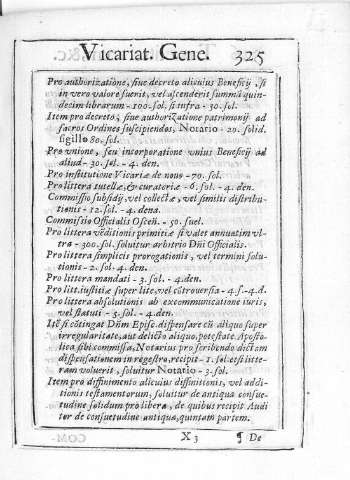 Vicariat. Gene. 325
Pro authorizatione, siue decreto alicuius Beneficij, si
in vero valore fuerit, vel ascenderit summã quin-
decim librarum - 100. sol. si infra - 30. sol.
Item pro decreto, siue authorizatione patrimonij ad
sacros Ordines suscipiendos, Notario - 20. solid.
sigillo 80. sol.
Pro vnione, seu incorporatione vnius Beneficij ad
aliud - 30. sol. - 4. den.
Pro institutione Vicariæ de nouo - 70. sol.
Pro littera tutellæ, & curatoriæ - 6. sol. - 4. den.
Commissio subsidij, vel collectæ, vel similis distribu-
tionis - 12. sol. - 4. dena.
Commissio Officialis Oscen. - 50. suel.
Pro littera vẽditionis primitiæ si valet annuatim vl-
tra - 300. sol. soluitur arbitrio Dñi Officialis.
Pro littera simplicis prorogationis, vel termini solu-
tionis - 2. sol. 4. den.
Pro littera mandati - 3. sol. - 4. den.
Pro litt. iustitiæ super lite, vel cõtrouersia - 4. s. - 4. d.
Pro littera absolutionis ab excommunicatione iuris,
vel statuti - 5. sol. - 4. den.
Itẽ si cõtingat Dñm Episc. dispensare cũ aliquo super
irregularitate, aut delicto aliquo, potestate Aposto-
lica sibi commissa. Notarius pro scribendo dictam
dispensationem in regestro, recipit - 1. sol. et si litte-
ram voluerit, soluitur Notario - 3. sol.
Item pro diffinimento alicuius diffinitionis, vel addi-
tionis testamentorum, soluitur de antiqua consue-
tudine solidum pro libera, de quibus recipit Audi
tor de consuetudine antiqua, quintam partem.
X 3 ¶ De